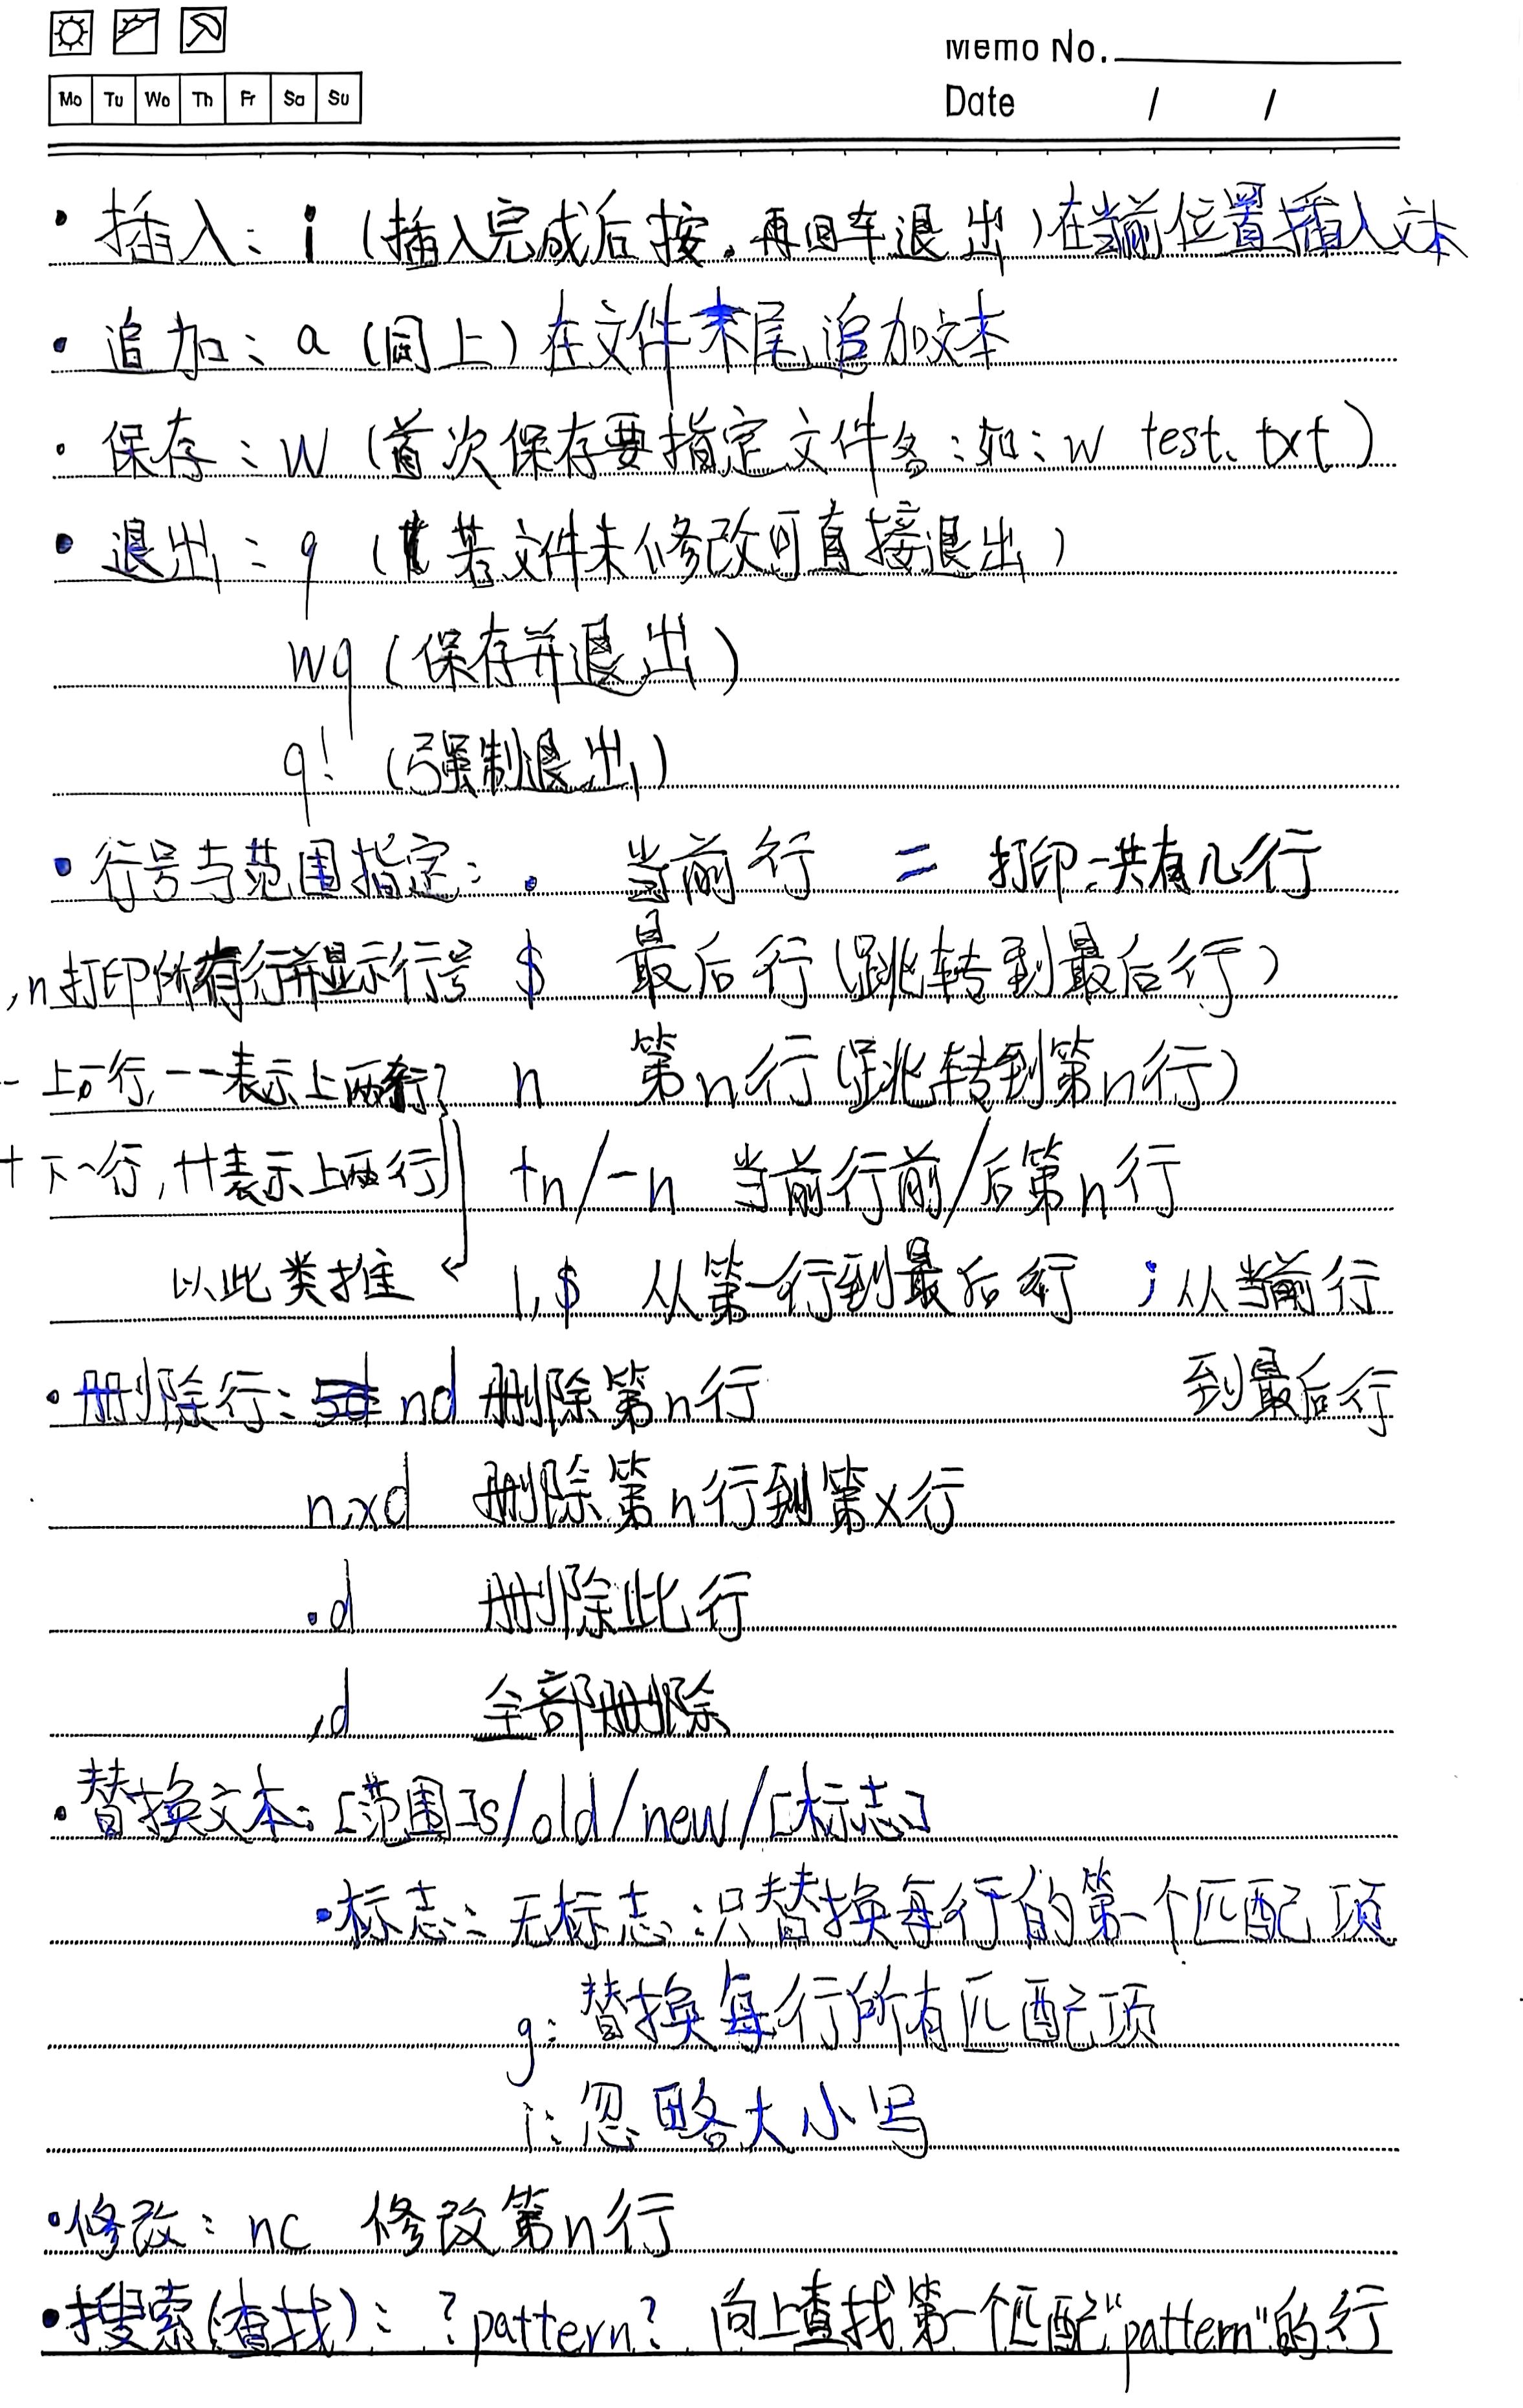 Memo No.
Mo Tu We Th Fr Sa Su
Date / /
• 插入: i (插入完成后按. 再回车退出)在当前位置插入文本
• 追加: a (同上) 在文件末尾追加文本
• 保存: w (首次保存要指定文件名:如: w test.txt)
• 退出: q (若文件未修改可直接退出)
wq (保存并退出)
q! (强制退出)
• 行号与范围指定: . 当前行 = 打印一共有几行
,n打印所有行并显示行号 $ 最后行(跳转到最后行)
- 上一行, --表示上两行 n 第n行(跳转到第n行)
+ 下一行, ++表示上两行 +n/-n 当前行前/后第n行
以此类推 1,$ 从第一行到最后行 ; 从当前行
到最后行
• 删除行: nd 删除第n行
n,xd 删除第n行到第x行
.d 删除此行
,d 全部删除
• 替换文本: [范围]s/old/new/[标志]
• 标志: 无标志:只替换每行的第一个匹配项
g: 替换每行所有匹配项
i: 忽略大小写
• 修改: nc 修改第n行
• 搜索(查找): ?pattern? 向上查找第一个匹配"pattern"的行